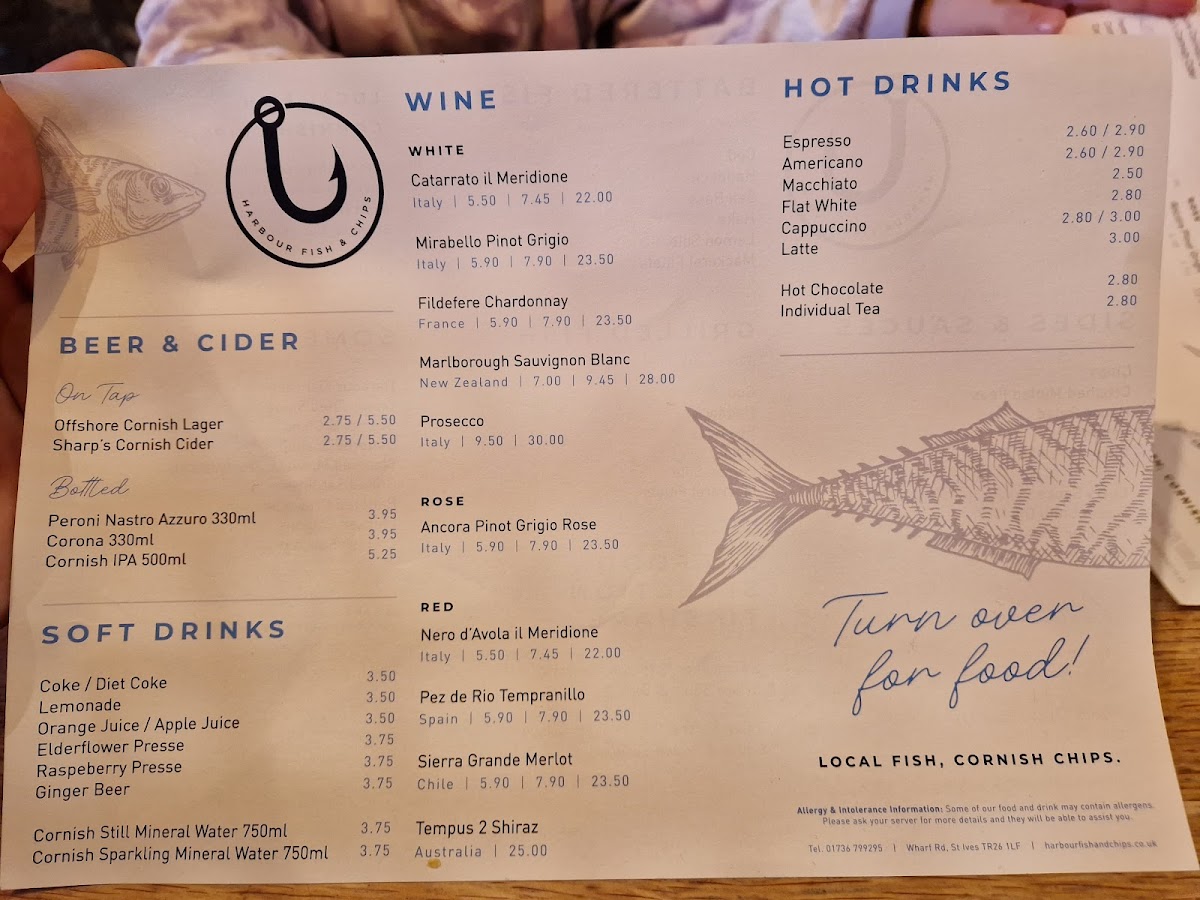 HARBOUR FISH & CHIPS
BEER & CIDER
On Tap
Offshore Cornish Lager 2.75 / 5.50
Sharp's Cornish Cider 2.75 / 5.50
Bottled
Peroni Nastro Azzuro 330ml 3.95
Corona 330ml 3.95
Cornish IPA 500ml 5.25
SOFT DRINKS
Coke / Diet Coke 3.50
Lemonade 3.50
Orange Juice / Apple Juice 3.50
Elderflower Presse 3.75
Raspeberry Presse 3.75
Ginger Beer 3.75
Cornish Still Mineral Water 750ml 3.75
Cornish Sparkling Mineral Water 750ml 3.75
WINE
WHITE
Catarrato il Meridione
Italy | 5.50 | 7.45 | 22.00
Mirabello Pinot Grigio
Italy | 5.90 | 7.90 | 23.50
Fildefere Chardonnay
France | 5.90 | 7.90 | 23.50
Marlborough Sauvignon Blanc
New Zealand | 7.00 | 9.45 | 28.00
Prosecco
Italy | 9.50 | 30.00
ROSE
Ancora Pinot Grigio Rose
Italy | 5.90 | 7.90 | 23.50
RED
Nero d'Avola il Meridione
Italy | 5.50 | 7.45 | 22.00
Pez de Rio Tempranillo
Spain | 5.90 | 7.90 | 23.50
Sierra Grande Merlot
Chile | 5.90 | 7.90 | 23.50
Tempus 2 Shiraz
Australia | 25.00
HOT DRINKS
Espresso 2.60 / 2.90
Americano 2.60 / 2.90
Macchiato 2.50
Flat White 2.80
Cappuccino 2.80 / 3.00
Latte 3.00
Hot Chocolate 2.80
Individual Tea 2.80
Turn over
for food!
LOCAL FISH, CORNISH CHIPS.
Allergy & Intolerance Information: Some of our food and drink may contain allergens.
Please ask your server for more details and they will be able to assist you.
Tel. 01736 799295 | Wharf Rd, St Ives TR26 1LF | harbourfishandchips.co.uk